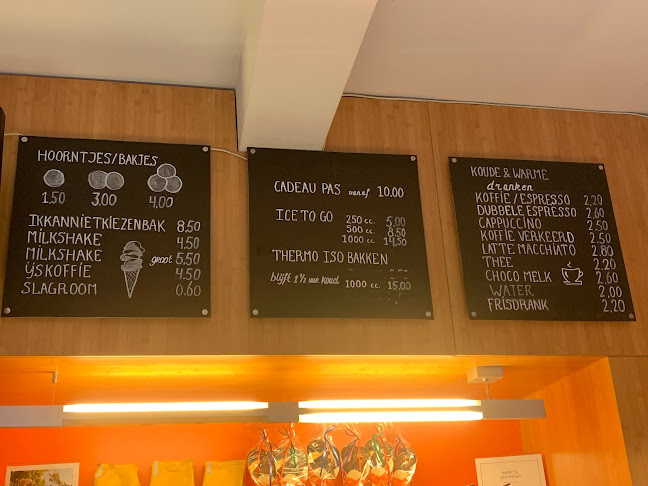 HOORNTJES/BAKJES
1.50 3.00 4,00
IKKANNIETKIEZENBAK 8.50
MILKSHAKE 4.50
MILKSHAKE groot 5.50
IJSKOFFIE 4.50
SLAGROOM 0.60
CADEAU PAS vanaf 10.00
ICE TO GO 250 cc. 5,00
500 cc. 8,50
1000 cc. 14,50
THERMO ISO BAKKEN
blijft 1½ uur koud 1000 cc. 15,00
KOUDE & WARME
dranken
KOFFIE / ESPRESSO 2,20
DUBBELE ESPRESSO 2,60
CAPPUCCINO 2,50
KOFFIE VERKEERD 2,50
LATTE MACCHIATO 2,80
THEE 2,20
CHOCO MELK 2,60
WATER 2,00
FRISDRANK 2,20